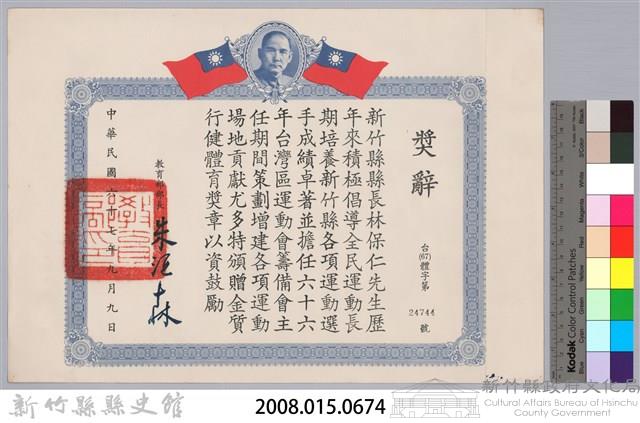 獎辭
台(67)體字第24744號
新竹縣縣長林保仁先生歷
年來積極倡導全民運動長
期培養新竹縣各項運動選
手成績卓著並擔任六十六
年台灣區運動會籌備會主
任期間策劃增建各項運動
場地貢獻尤多特頒贈金質
行健體育獎章以資鼓勵
教育部部長 朱滙森
中華民國六十七年九月九日
Kodak Color Control Patches
Blue
Cyan
Green
Yellow
Red
Magenta
White
3/Color
Black
新竹縣縣史館
2008.015.0674
新竹縣政府文化局
Cultural Affairs Bureau of Hsinchu
County Government